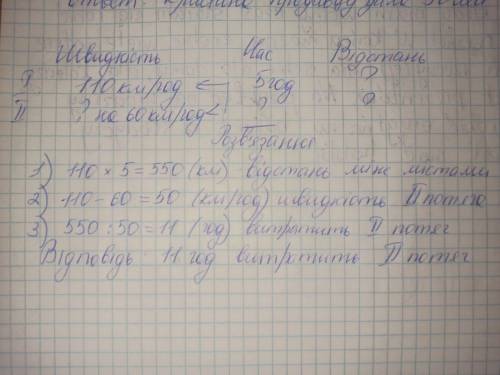 Ответ: Кристина продиводузила 30 лет
Швидкість Час Відстань
I 110 км/год 5год ?
II ? на 60 км/год< ? ?
Розв'язання
1) 110 × 5 = 550 (км) відстань між містами
2) 110 - 60 = 50 (км/год) швидкість II потяга
3) 550 : 50 = 11 (год) витратить II потяг
Відповідь: 11 год витратить II потяг